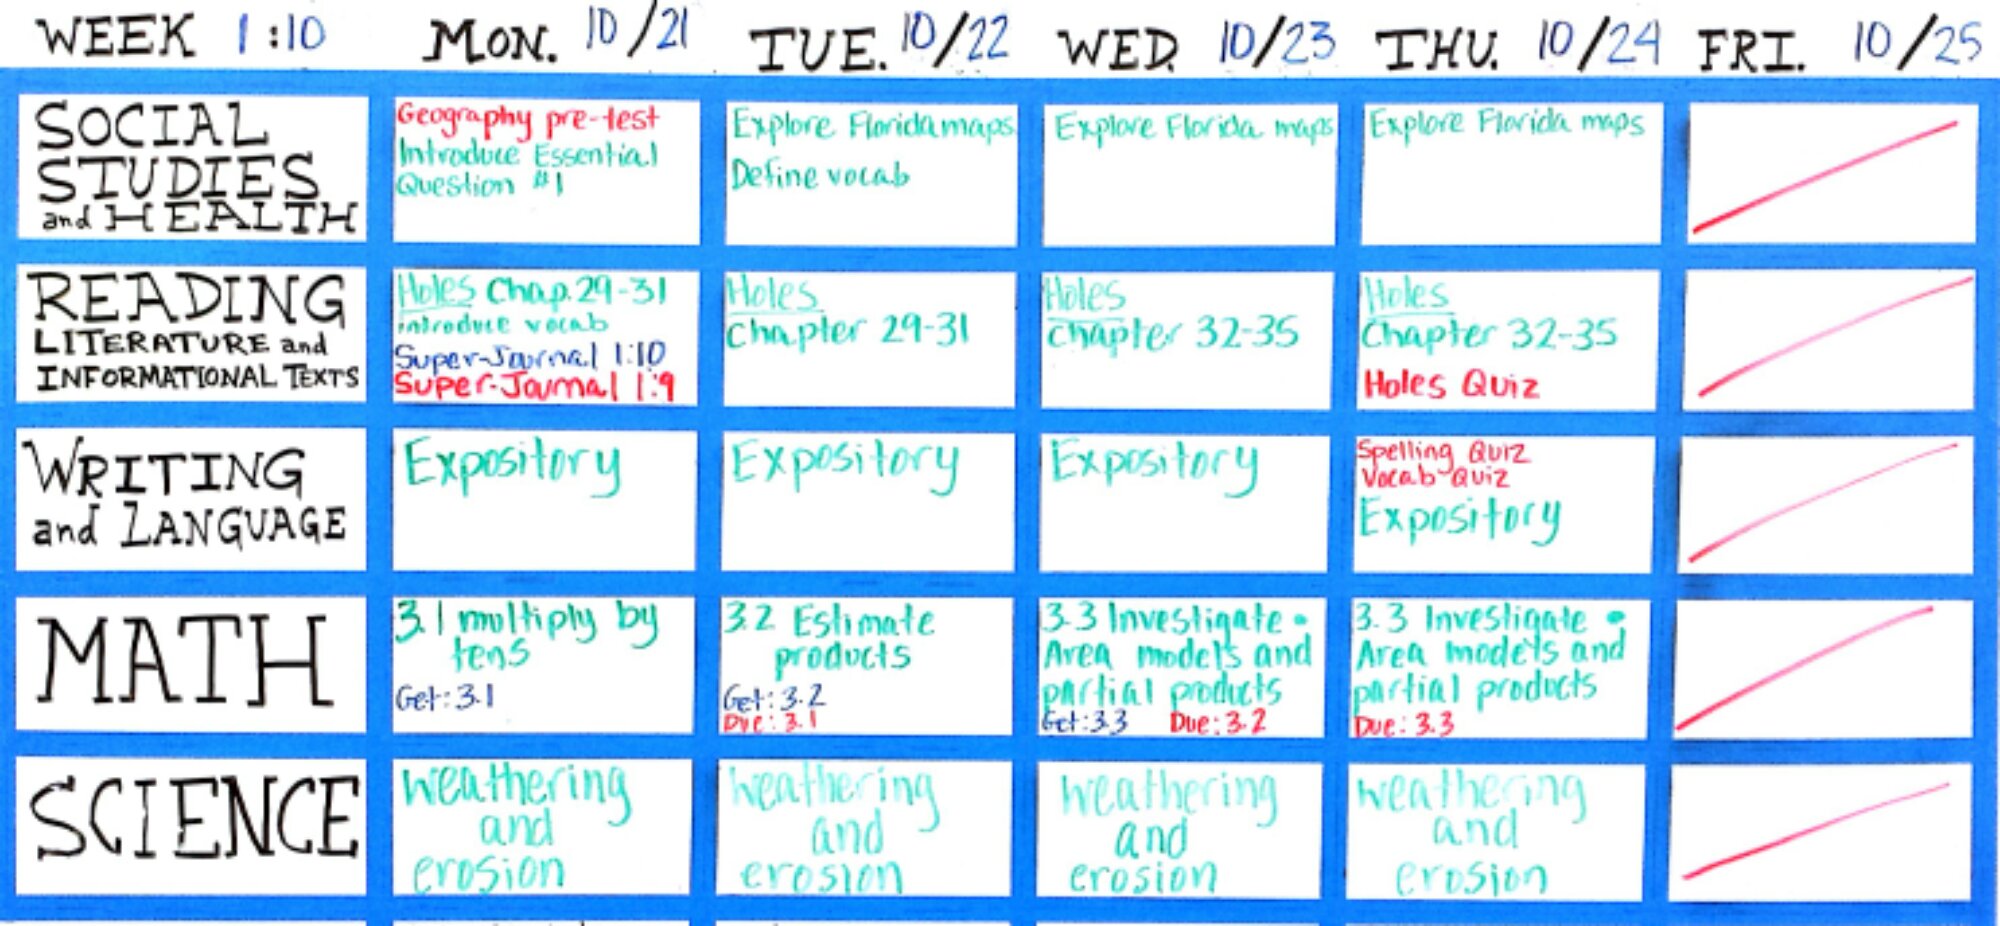 WEEK 1:10 MON. 10/21 TUE. 10/22 WED. 10/23 THU. 10/24 FRI. 10/25
SOCIAL
STUDIES
and HEALTH
Geography pre-test
Introduce Essential
Question #1
Explore Florida maps
Define vocab
Explore Florida maps
Explore Florida maps
READING
LITERATURE and
INFORMATIONAL TEXTS
Holes Chap. 29-31
introduce vocab
Super-Journal 1:10
Super-Journal 1:9
Holes
Chapter 29-31
Holes
Chapter 32-35
Holes
Chapter 32-35
Holes Quiz
WRITING
and LANGUAGE
Expository
Expository
Expository
Spelling Quiz
Vocab Quiz
Expository
MATH
3.1 multiply by
tens
Get: 3.1
3.2 Estimate
products
Get: 3.2
Due: 3.1
3.3 Investigate •
Area models and
partial products
Get: 3.3 Due: 3.2
3.3 Investigate •
Area models and
partial products
Due: 3.3
SCIENCE
weathering
and
erosion
weathering
and
erosion
weathering
and
erosion
weathering
and
erosion